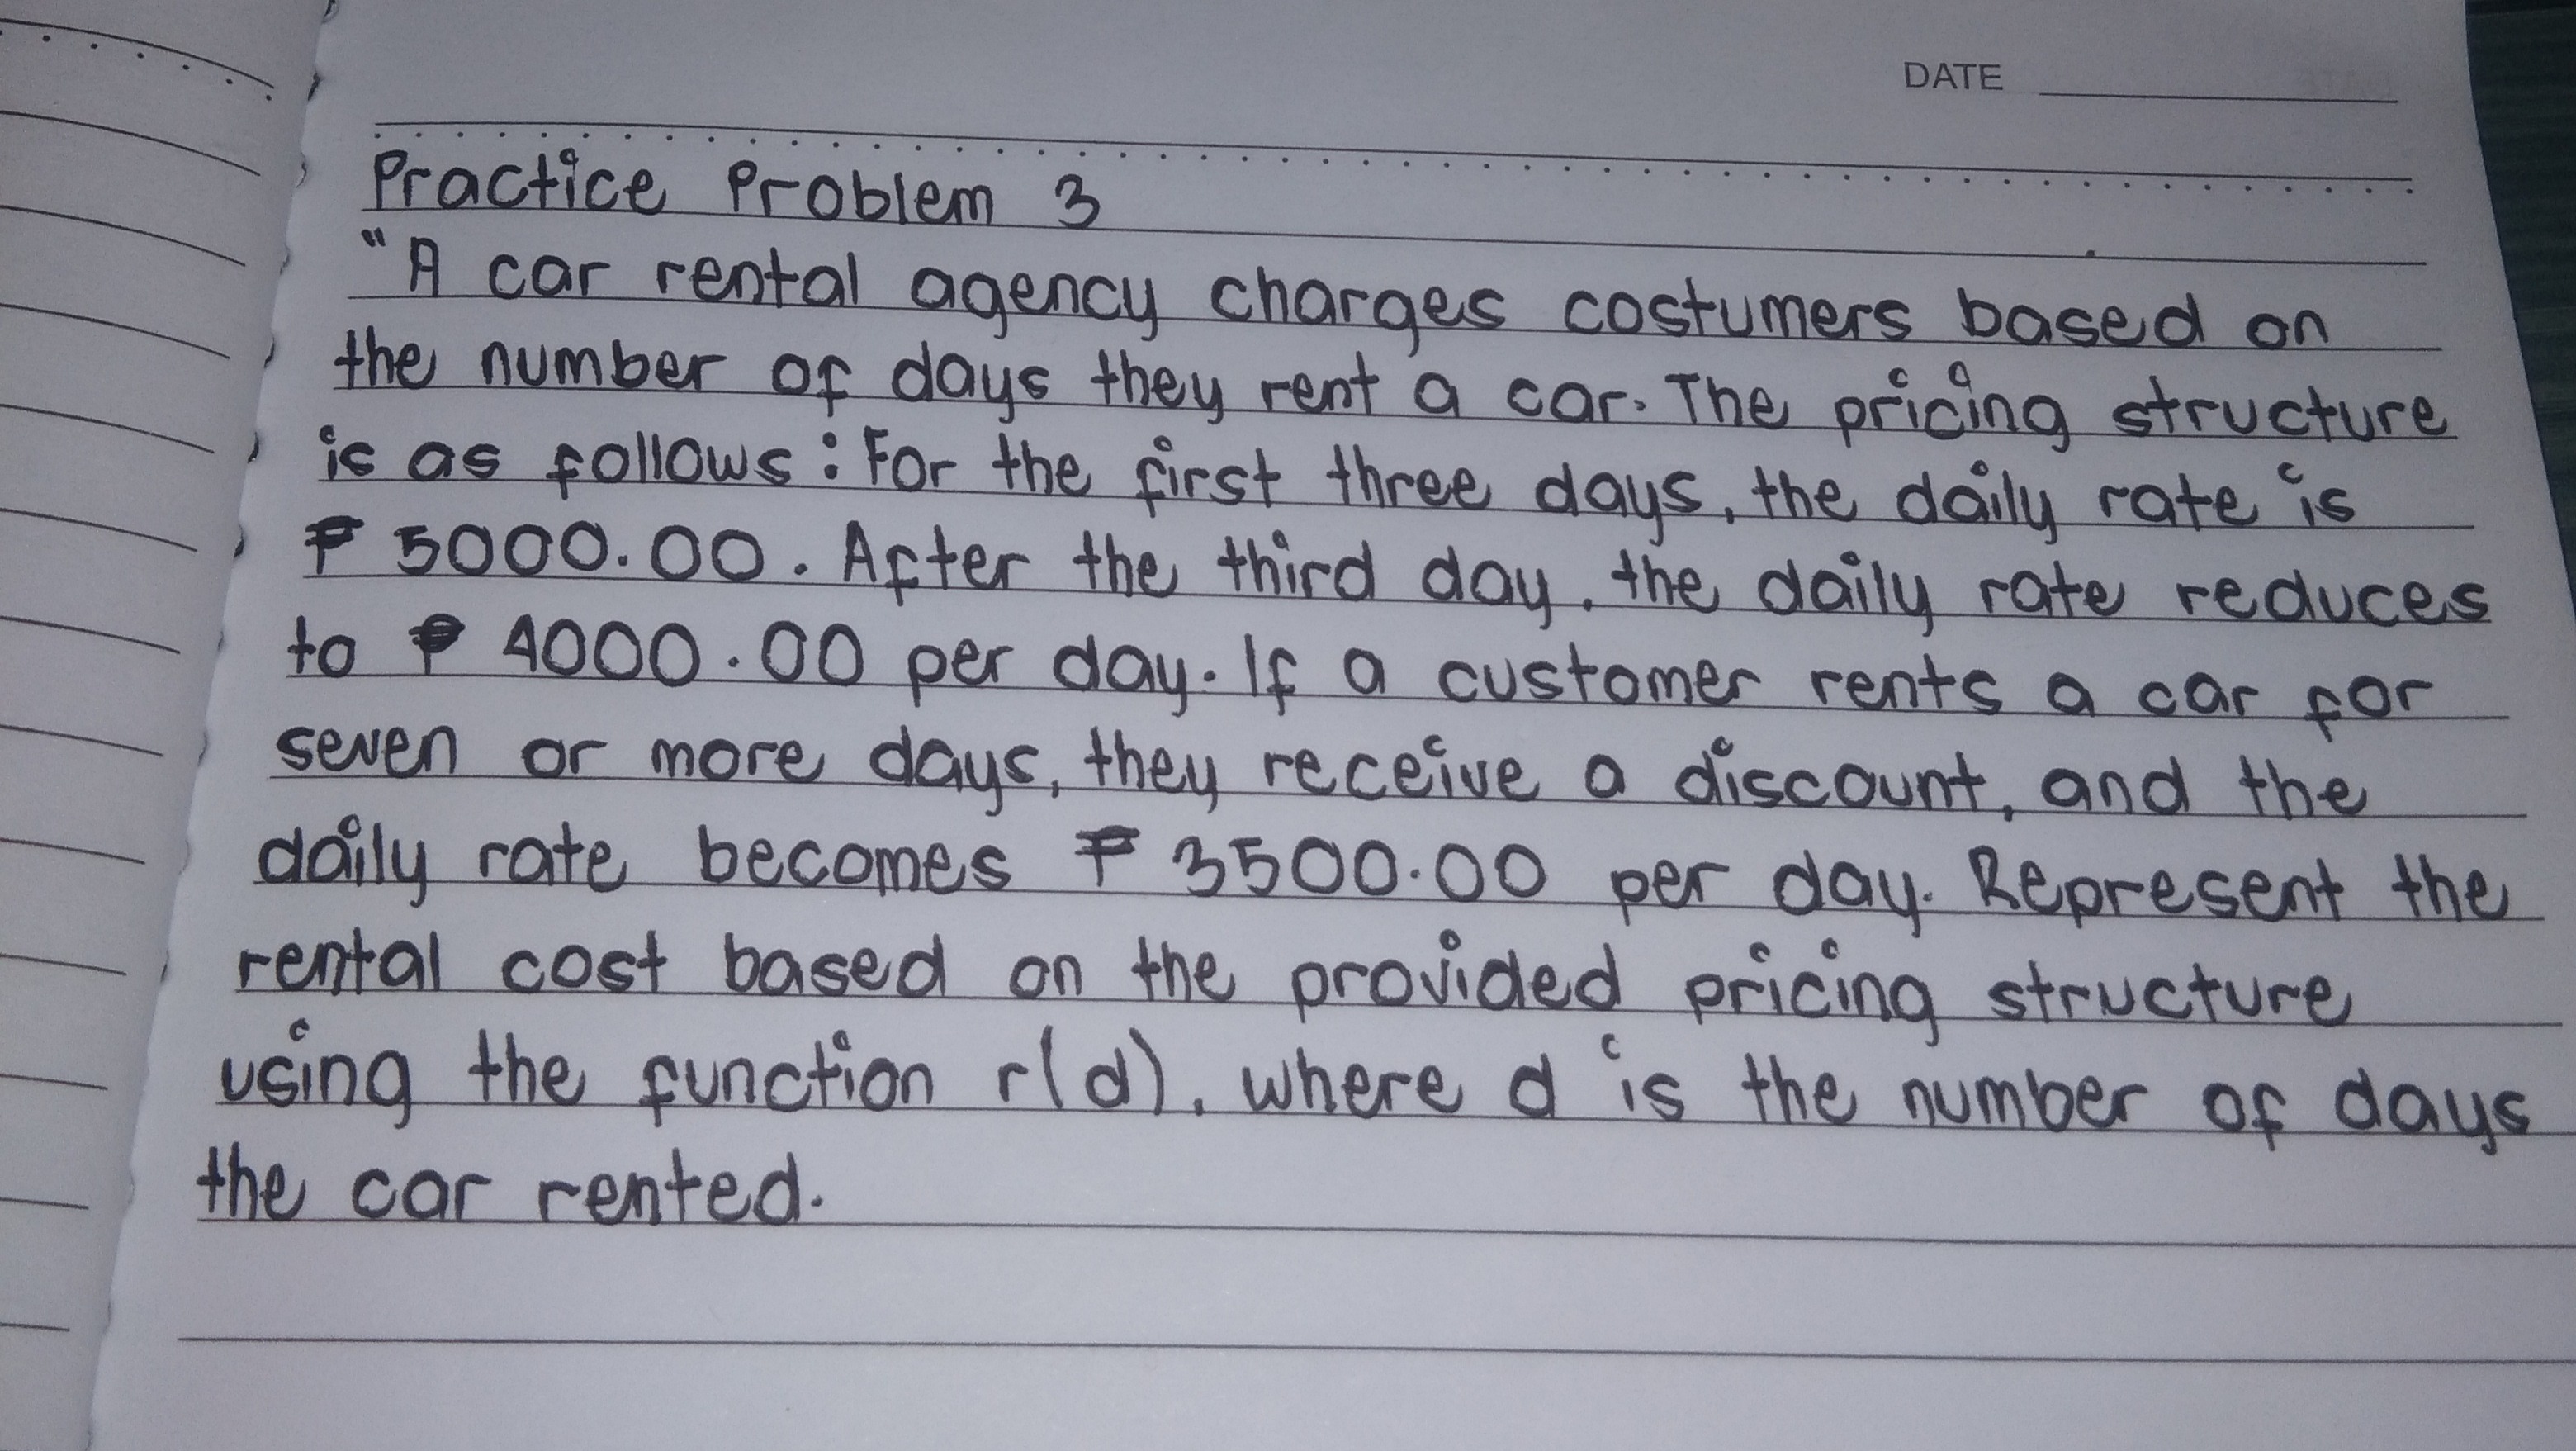 DATE
Practice Problem 3
"A car rental agency charges costumers based on
the number of days they rent a car. The pricing structure
is as follows: For the first three days, the daily rate is
₱ 5000.00. After the third day, the daily rate reduces
to ₱ 4000.00 per day. If a customer rents a car for
seven or more days, they receive a discount, and the
daily rate becomes ₱ 3500.00 per day. Represent the
rental cost based on the provided pricing structure
using the function r(d), where d is the number of days
the car rented.